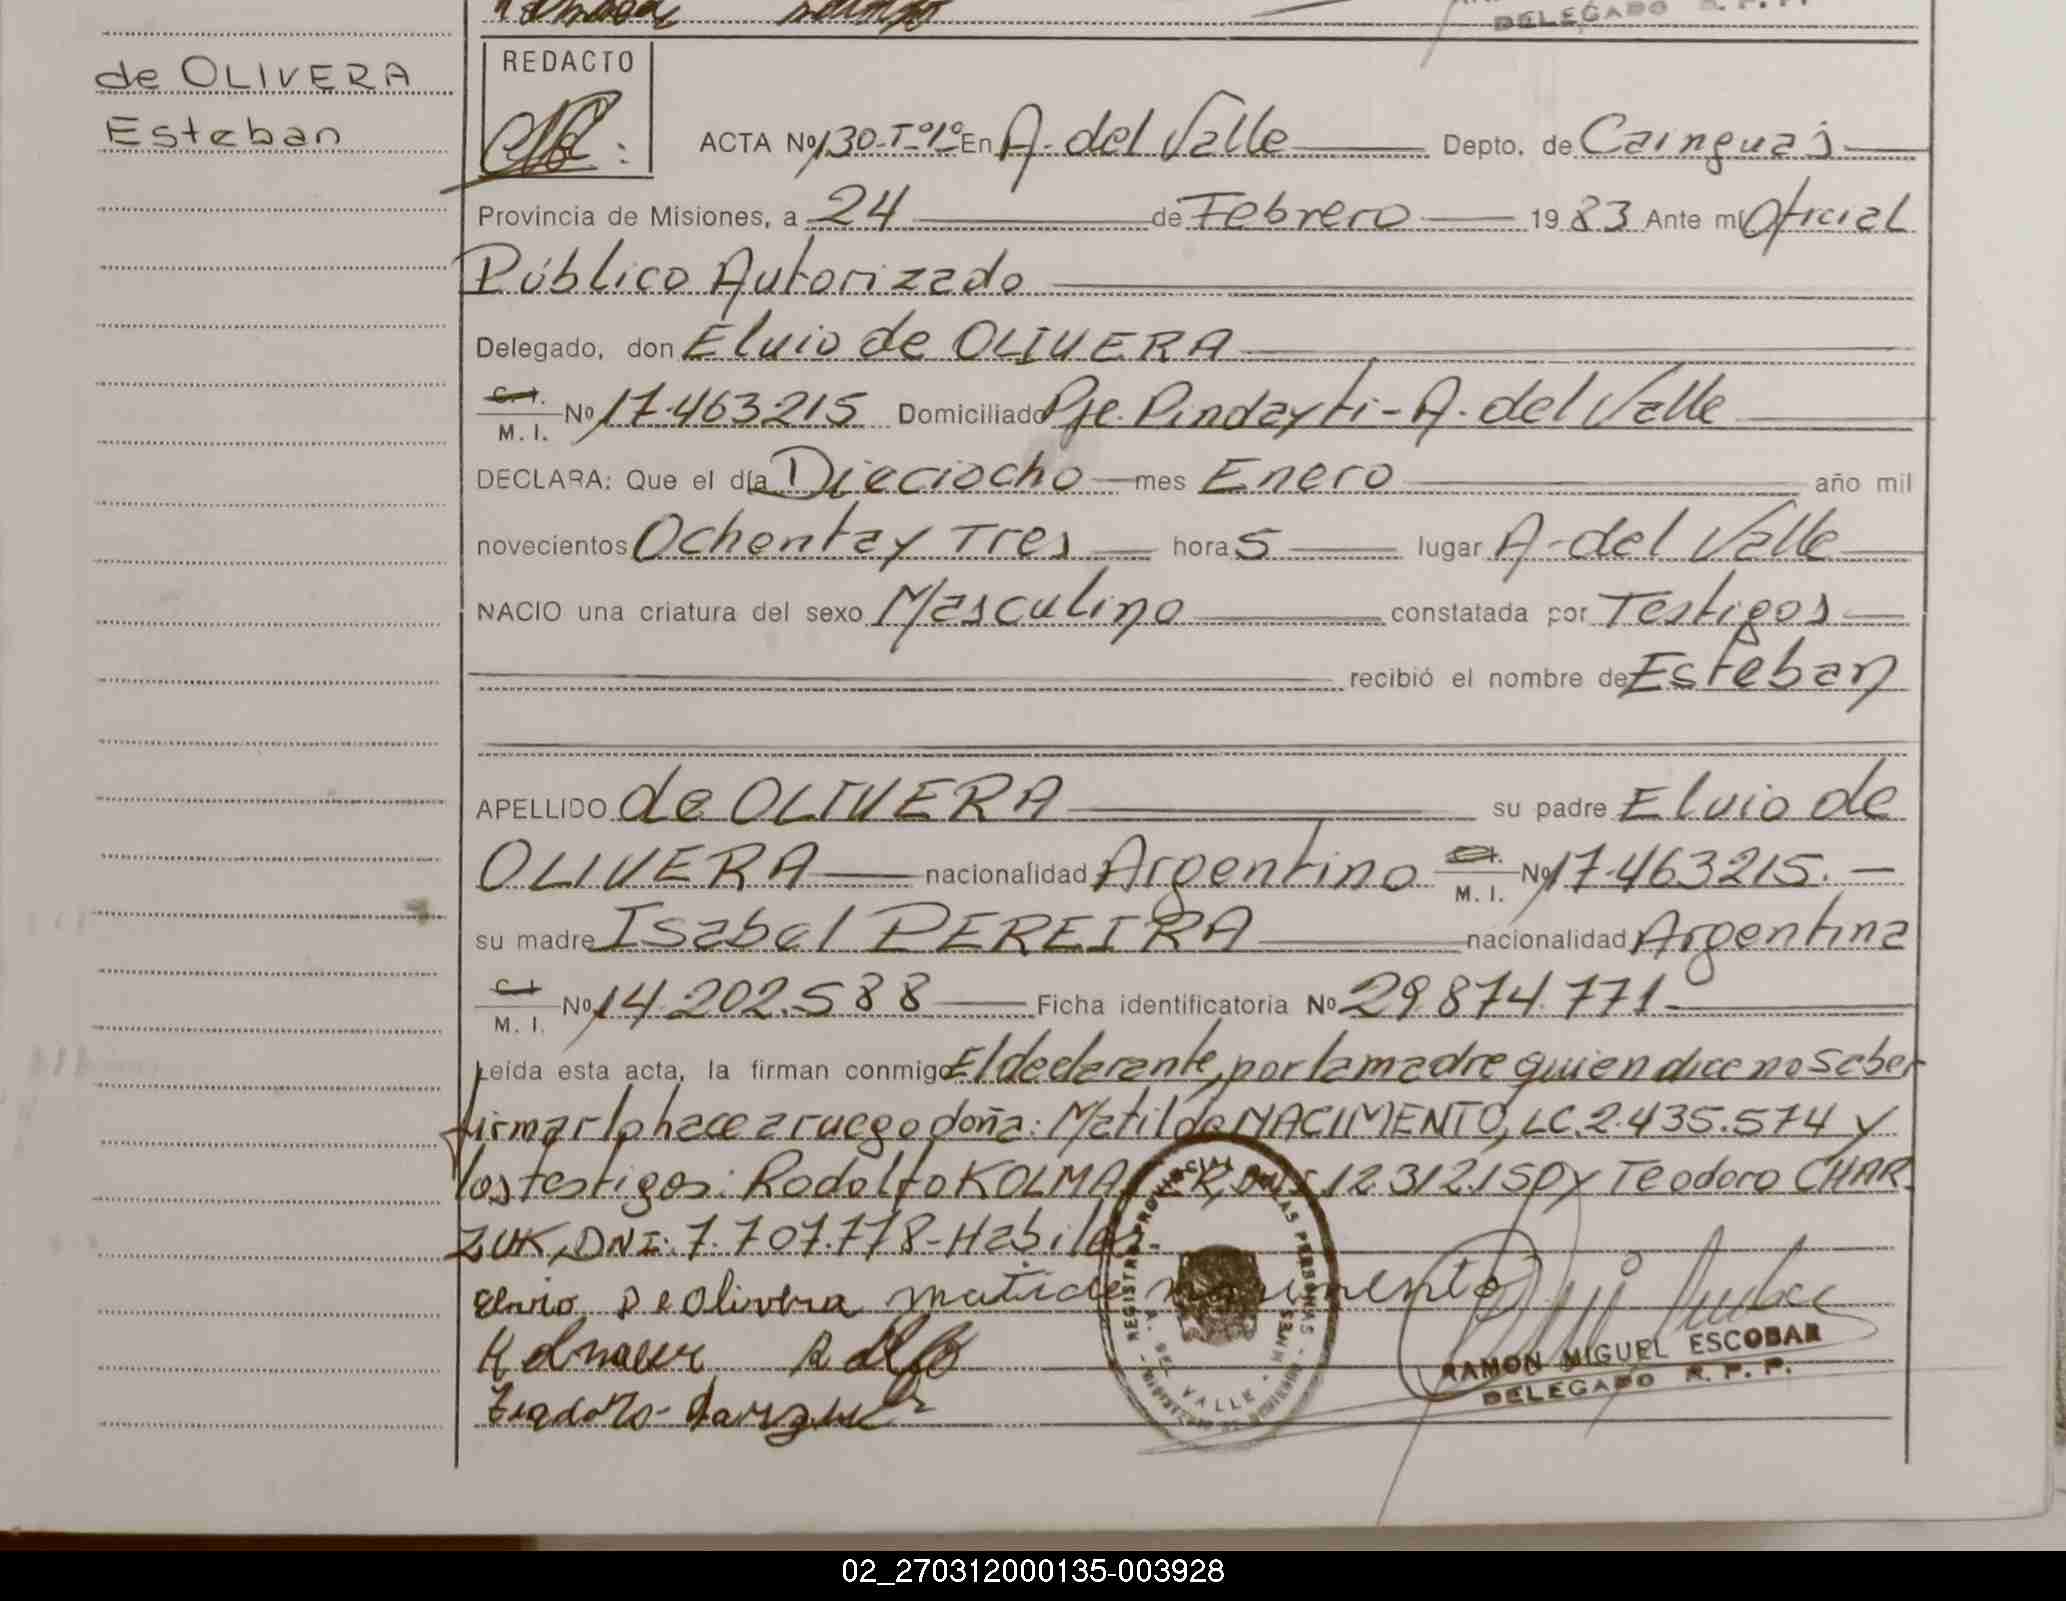 DELEGADO R. P. P.
de OLIVERA
Esteban
REDACTO
ACTA Nº 130-Tº1º En A. del Valle Depto. de Cainguás
Provincia de Misiones, a 24 de Febrero 1983 Ante mí Oficial
Público Autorizado
Delegado, don Elvio de OLIVERA
C. I.
M. I. Nº 17.463215 Domiciliado Pje. Pindayti-A. del Valle
DECLARA: Que el día Dieciocho mes Enero año mil
novecientos Ochenta y Tres hora 5 lugar A. del Valle
NACIO una criatura del sexo Masculino constatada por Testigos
recibió el nombre de Esteban
APELLIDO de OLIVERA su padre Elvio de
OLIVERA nacionalidad Argentino C.I. M. I. Nº 17.463215.-
su madre Isabel PEREIRA nacionalidad Argentina
C. I.
M. I. Nº 14.202.588 Ficha identificatoria Nº 29.874.771
Leída esta acta, la firman conmigo El declarante, por la madre quien dice no saber
firmar lo hace a ruego doña: Matilde NACIMIENTO, LC. 2.435.574 y
los testigos: Rodolfo DNI 12.312.150 y Teodoro CHAR
ZUK, DNI: 7.707.778-Habiles.
Elvio De Olivera matilde
REGISTRO PROVINCIAL DE LAS PERSONAS
A. DEL VALLE - MNES
RAMON MIGUEL ESCOBAR
DELEGADO R. P. P.
02_270312000135-003928